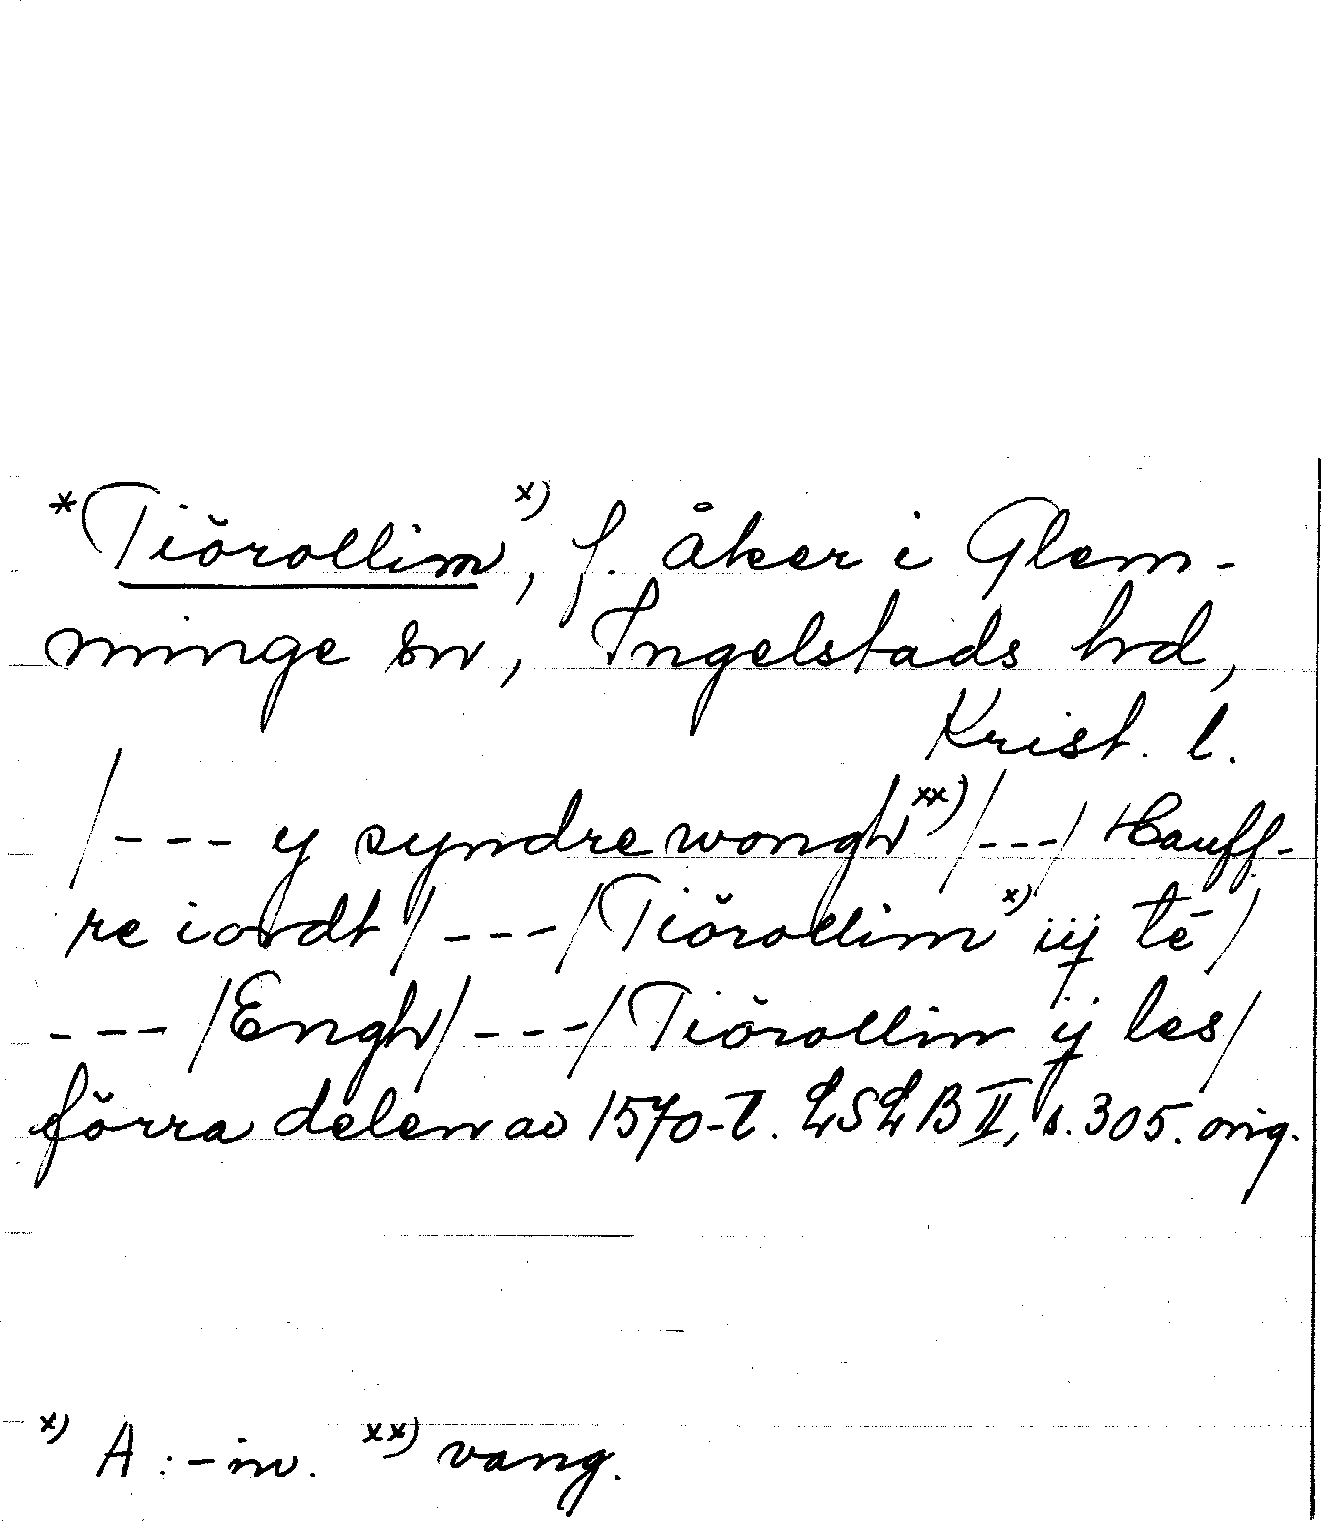 *Tiörollim x), f. åker i Glem-
minge sn, Ingelstads hd,
Krist. l.
/--- y syndre wongh xx) /---/ Hauff-
re iordt /---/ Tiörollim x) iij tē /
--- /Engh/ ---/ Tiörollin ij les/
förra delen av 1570-t. LSLB II, s. 305. orig.
x) A :-in. xx) vang.